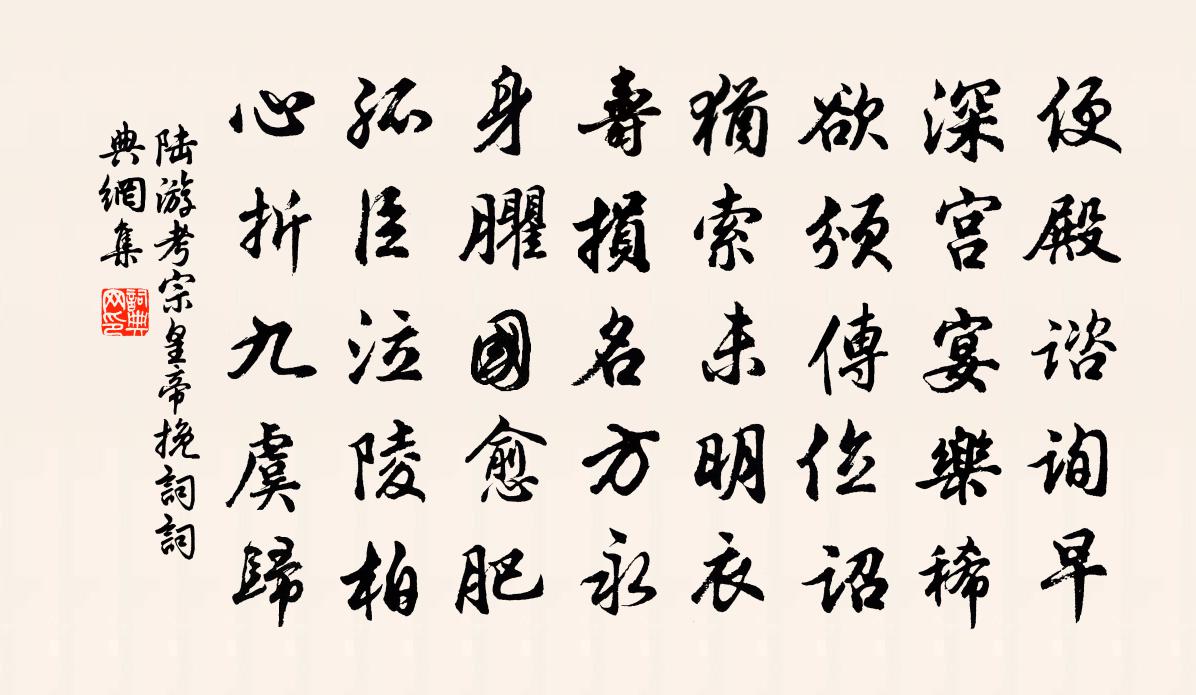 便殿諮詢早
深宫宴樂稀
欲頒傳位詔
猶索未明衣
壽損名方永
身臞國愈肥
孤臣泣陵柏
心折九虞歸
陸游考宗皇帝挽詞詞
典網集
詞典
网印